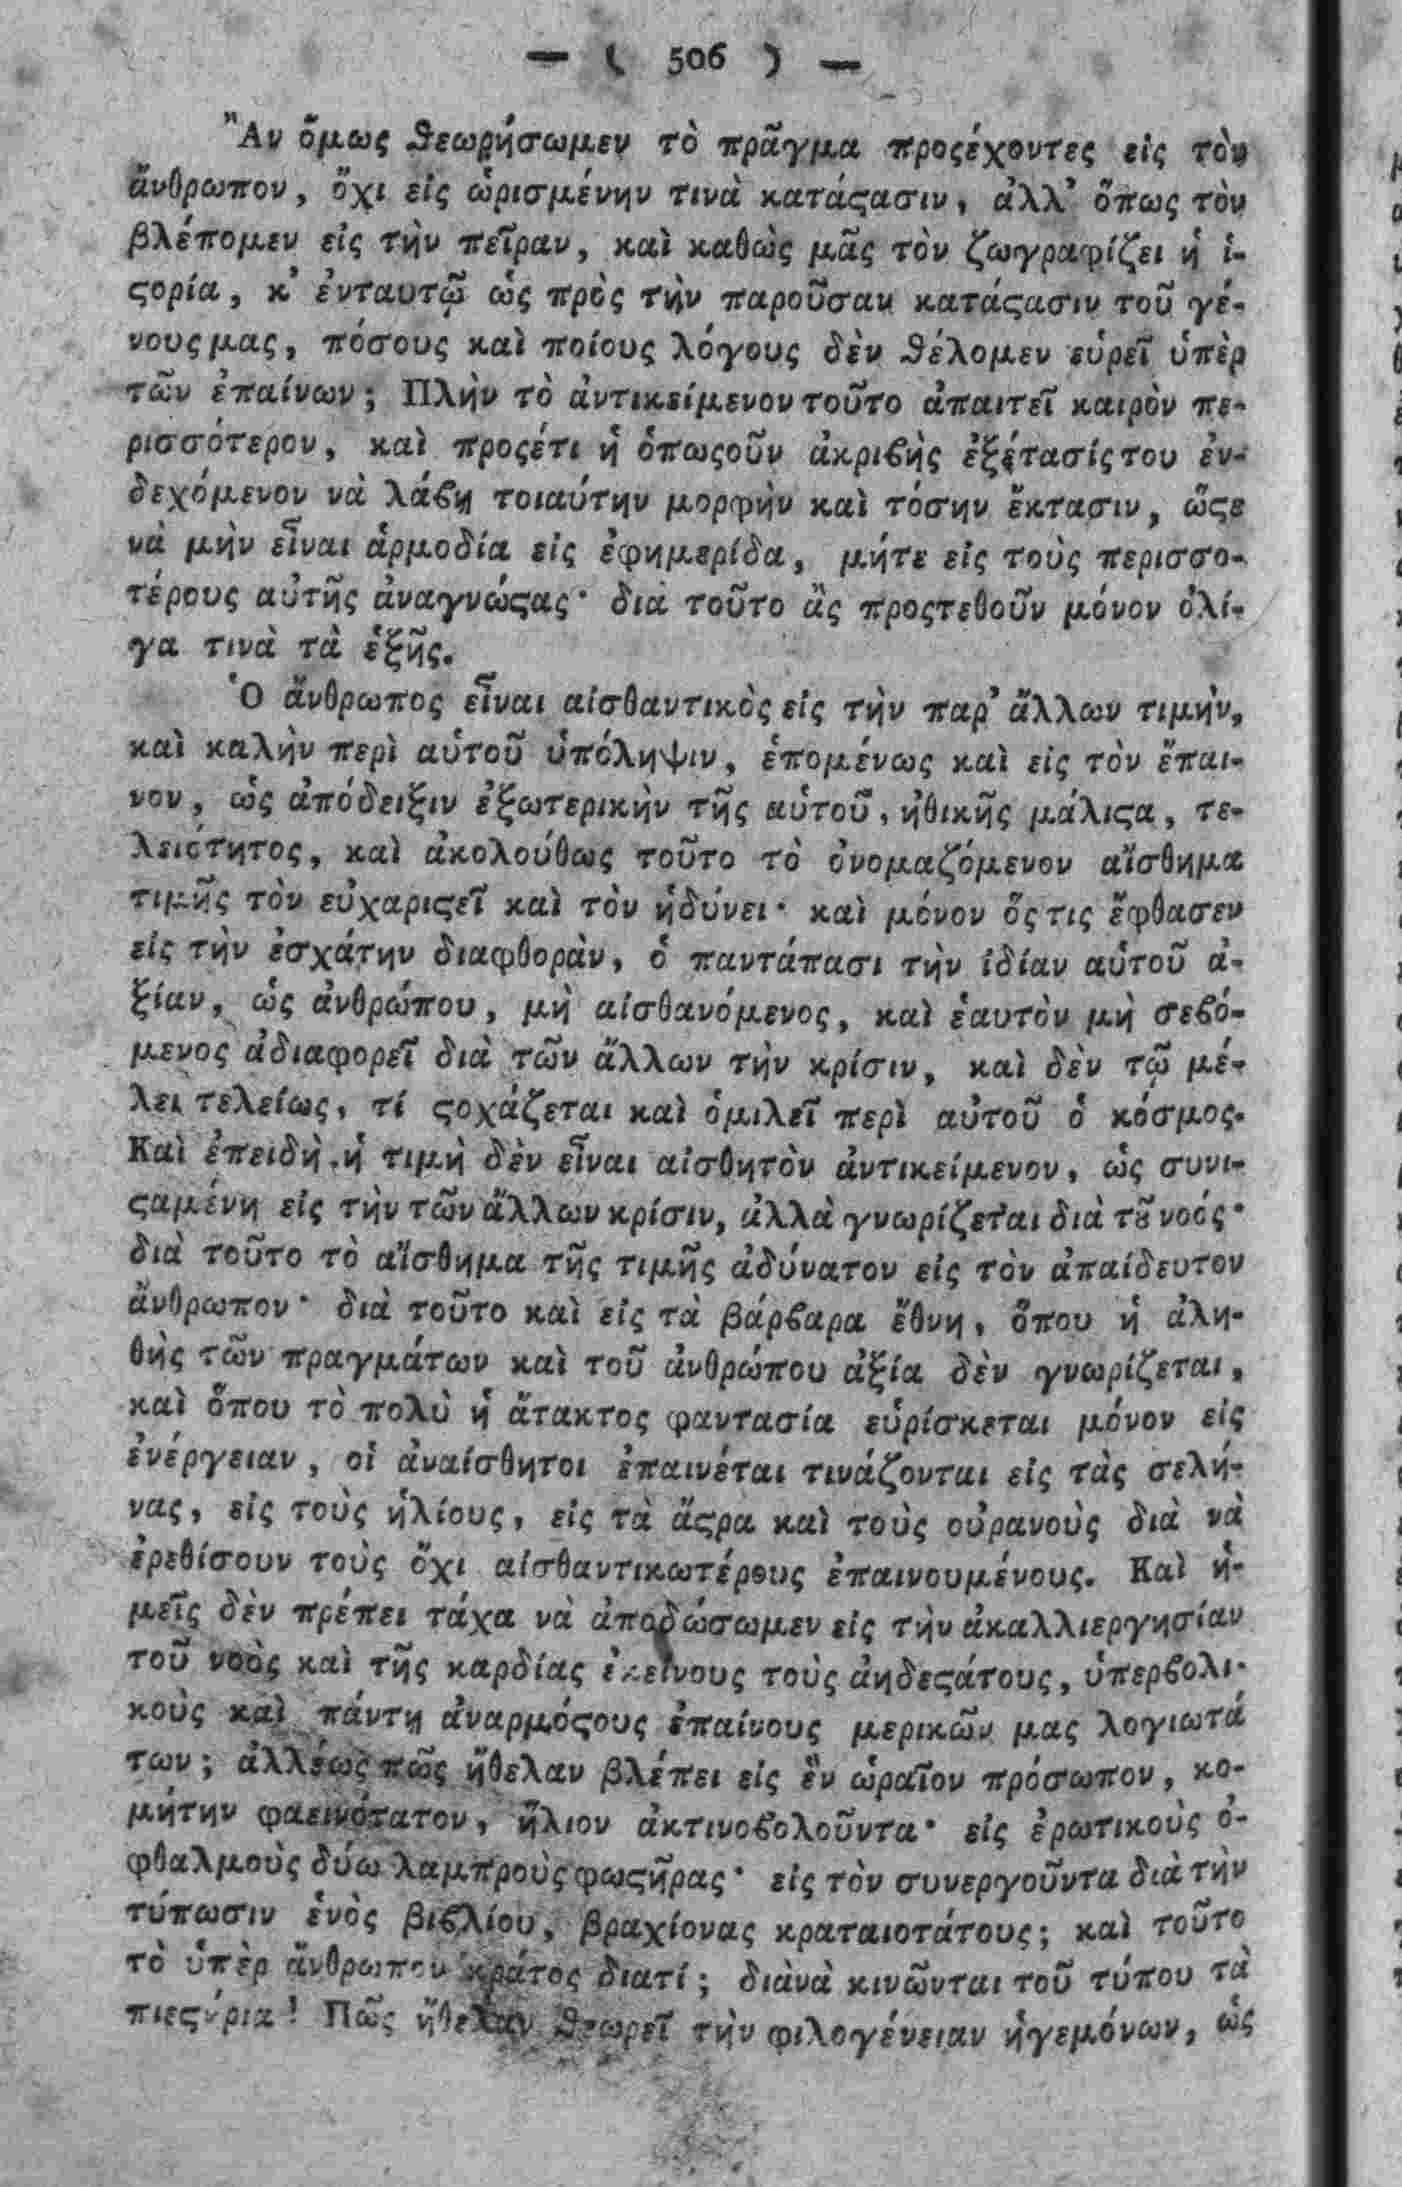 — ( 506 ) —
Ἂν ὅμως ϑεωρήσωμεν τὸ πρᾶγμα προςέχοντες εἰς τὸν
ἄνθρωπον, ὄχι εἰς ὡρισμένην τινὰ κατάϛασιν, ἀλλ' ὅπως τὸν
βλέπομεν εἰς τὴν πεῖραν, καὶ καθὼς μᾶς τὸν ζωγραφίζει ἡ ἱ-
ϛορία, κ' ἐνταυτῷ ὡς πρὸς τὴν παροῦσαν κατάϛασιν τοῦ γέ-
νους μας, πόσους καὶ ποίους λόγους δὲν ϑέλομεν εὑρεῖ ὑπὲρ
τῶν ἐπαίνων; Πλὴν τὸ ἀντικείμενον τοῦτο ἀπαιτεῖ καιρὸν πε-
ρισσότερον, καὶ προςέτι ἡ ὁπωςοῦν ἀκριϐὴς ἐξέτασίς του ἐν-
δεχόμενον νὰ λάϐῃ τοιαύτην μορφὴν καὶ τόσην ἔκτασιν, ὥϛε
νὰ μὴν εἶναι ἁρμοδία εἰς ἐφημερίδα, μήτε εἰς τοὺς περισσο-
τέρους αὐτῆς ἀναγνώϛας· διὰ τοῦτο ἂς προςτεθοῦν μόνον ὀλί-
γα τινὰ τὰ ἑξῆς.
Ὁ ἄνθρωπος εἶναι αἰσθαντικὸς εἰς τὴν παρ' ἄλλων τιμὴν,
καὶ καλὴν περὶ αὑτοῦ ὑπόληψιν, ἑπομένως καὶ εἰς τὸν ἔπαι-
νον, ὡς ἀπόδειξιν ἐξωτερικὴν τῆς αὑτοῦ, ἠθικῆς μάλιϛα, τε-
λειότητος, καὶ ἀκολούθως τοῦτο τὸ ὀνομαζόμενον αἴσθημα
τιμῆς τὸν εὐχαριϛεῖ καὶ τὸν ἡδύνει· καὶ μόνον ὅς τις ἔφθασεν
εἰς τὴν ἐσχάτην διαφθορὰν, ὁ παντάπασι τὴν ἰδίαν αὑτοῦ ἀ-
ξίαν, ὡς ἀνθρώπου, μὴ αἰσθανόμενος, καὶ ἑαυτὸν μὴ σεϐό-
μενος ἀδιαφορεῖ διὰ τῶν ἄλλων τὴν κρίσιν, καὶ δὲν τῷ μέ-
λει τελείως, τί ϛοχάζεται καὶ ὁμιλεῖ περὶ αὐτοῦ ὁ κόσμος.
Καὶ ἐπειδὴ ἡ τιμὴ δὲν εἶναι αἰσθητὸν ἀντικείμενον, ὡς συνι-
ϛαμένη εἰς τὴν τῶν ἄλλων κρίσιν, ἀλλὰ γνωρίζεται διὰ τȣ͂ νοός·
διὰ τοῦτο τὸ αἴσθημα τῆς τιμῆς ἀδύνατον εἰς τὸν ἀπαίδευτον
ἄνθρωπον· διὰ τοῦτο καὶ εἰς τὰ βάρϐαρα ἔθνη, ὅπου ἡ ἀλη-
θὴς τῶν πραγμάτων καὶ τοῦ ἀνθρώπου ἀξία δὲν γνωρίζεται,
καὶ ὅπου τὸ πολὺ ἡ ἄτακτος φαντασία εὑρίσκεται μόνον εἰς
ἐνέργειαν, οἱ ἀναίσθητοι ἐπαινέται τινάζονται εἰς τὰς σελή-
νας, εἰς τοὺς ἡλίους, εἰς τὰ ἄϛρα καὶ τοὺς οὐρανοὺς διὰ νὰ
ἐρεθίσουν τοὺς ὄχι αἰσθαντικωτέρους ἐπαινουμένους. Καὶ ἡ-
μεῖς δὲν πρέπει τάχα νὰ ἀποδώσωμεν εἰς τὴν ἀκαλλιεργησίαν
τοῦ νοὸς καὶ τῆς καρδίας ἐκείνους τοὺς ἀηδεϛάτους, ὑπερϐολι-
κοὺς καὶ πάντῃ ἀναρμόϛους ἐπαίνους μερικῶν μας λογιωτά
των; ἀλλέως πῶς ἤθελαν βλέπει εἰς ἓν ὡραῖον πρόσωπον, κο-
μήτην φαεινότατον, ἥλιον ἀκτινοϐολοῦντα· εἰς ἐρωτικοὺς ὀ-
φθαλμοὺς δύω λαμπροὺς φωϛῆρας· εἰς τὸν συνεργοῦντα διὰ τὴν
τύπωσιν ἑνὸς βιϐλίου, βραχίονας κραταιοτάτους; καὶ τοῦτο
τὸ ὑπὲρ ἄνθρωπον κράτος διατί; διὰνὰ κινῶνται τοῦ τύπου τὰ
πιεϛήρια! Πῶς ἤθελαν ϑεωρεῖ τὴν φιλογένειαν ἡγεμόνων, ὡς